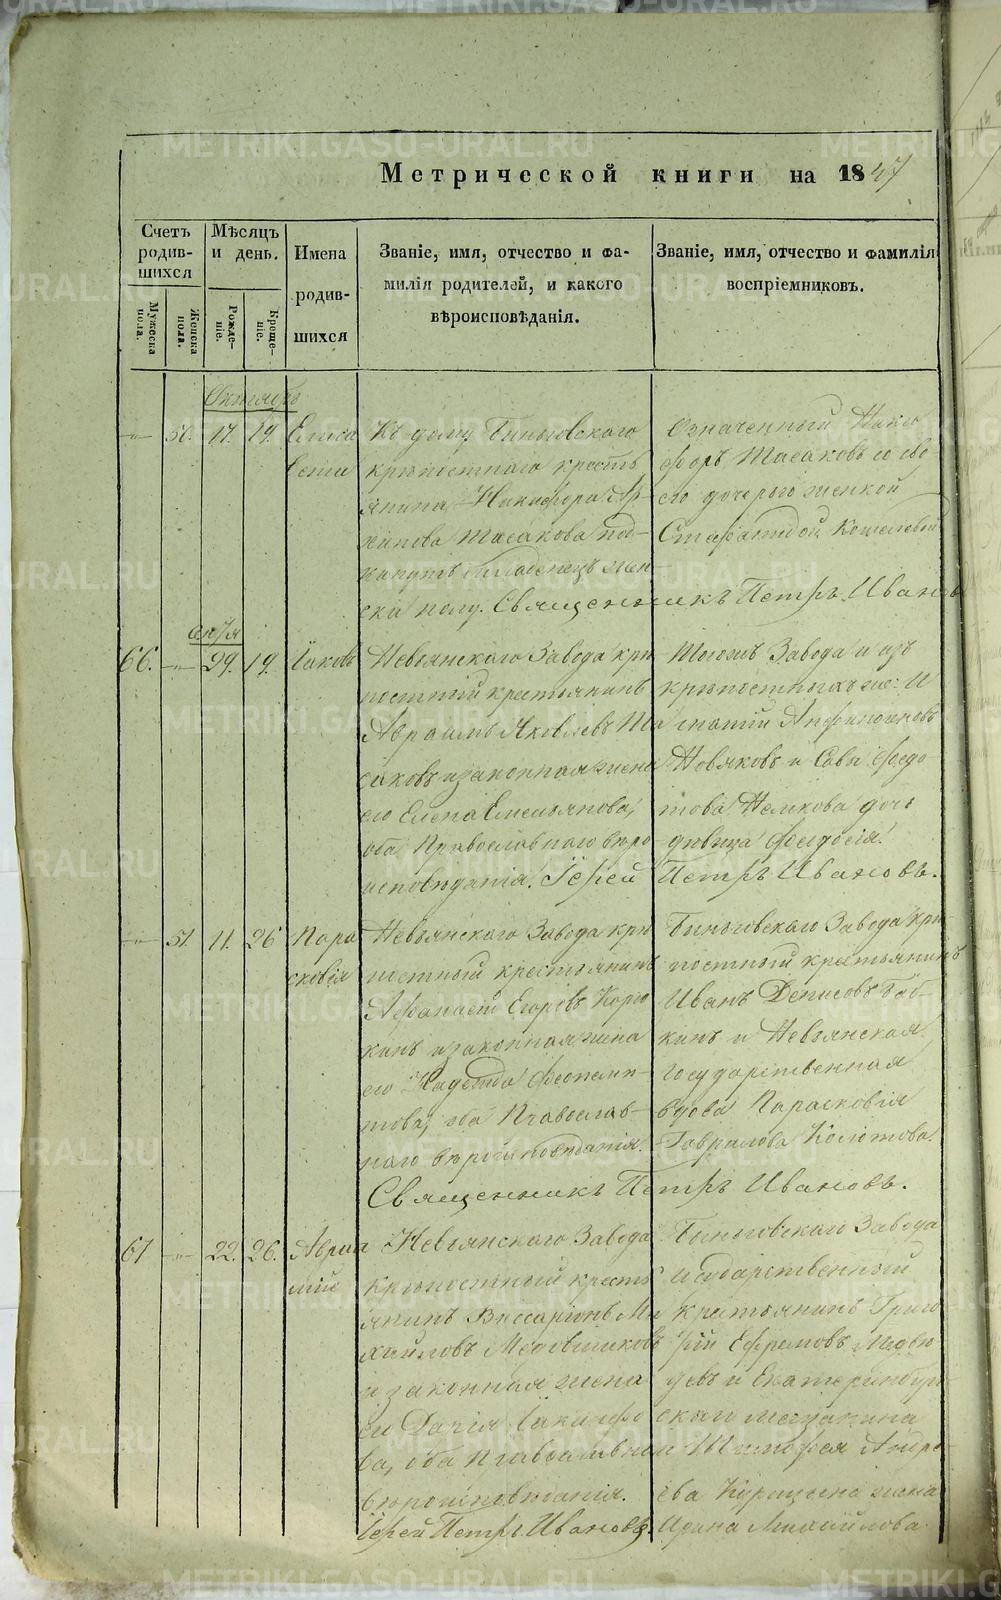 Метрической книги на 1847
Счетъ родив-шихся
Мужеска пола.
Женска пола.
Мѣсяцъ и день.
Рожде-ніе.
Креще-ніе.
Имена родив-шихся
Званіе, имя, отчество и фа-
милія родителей, и какого
вѣроисповѣданія.
Званіе, имя, отчество и фамилія
воспріемниковъ.
Октябрь
50. 17. 19. Елиса
вета
Къ дому Быньговскаго
крѣпостнаго кресть
янина Никифора Ар
хипова Масакова под-
кинутъ младенецъ жен-
ска полу. Священникъ Петръ Ивановъ
Означенный Ники
форъ Масаковъ со сво
ею дочерью женкой
66. 29. 19. Іаковъ
Невьянскаго Завода крѣ
постный крестьянинъ
Авраамъ Яковлевъ Ма
саковъ и законная жена
его Елена Емельянова,
оба Православнаго вѣро
исповѣданія. Іерей Петръ Ивановъ.
Тогожъ Завода и изъ
крѣпостныхъ же: И
и Савы Федо
това дочь
дѣвица Феодосія.
51. 11. 26 Пара
сковія
Невьянскаго Завода крѣ
постный крестьянинъ
Афанасій Егоровъ
и законная жена
его Надежда Феопемп-
това, оба Православ-
наго вѣроисповѣданія.
Священникъ Петръ Ивановъ.
Быньговскаго Завода крѣ-
постный крестьянинъ
Иванъ Денисовъ Баб
кинъ и Невьянская
государственная
вдова Парасковія
Гаврилова
67 22. 26. Авра
мій
Невьянскаго Завода
крѣпостный кресть
янинъ Виссаріонъ Ми
хайловъ Медовщиковъ
и законная жена
ва, оба Православнаго
вѣроисповѣданія.
Іерей Петръ Ивановъ.
Быньговскаго Завода
государственный
крестьянинъ Григо
рій Ефремовъ Медвѣ
девъ и Екатеринбург-
скаго мещанина
Тимофея Андре-
ева жена
Ирина Михайлова.
METRIKI.GASO-URAL.RU